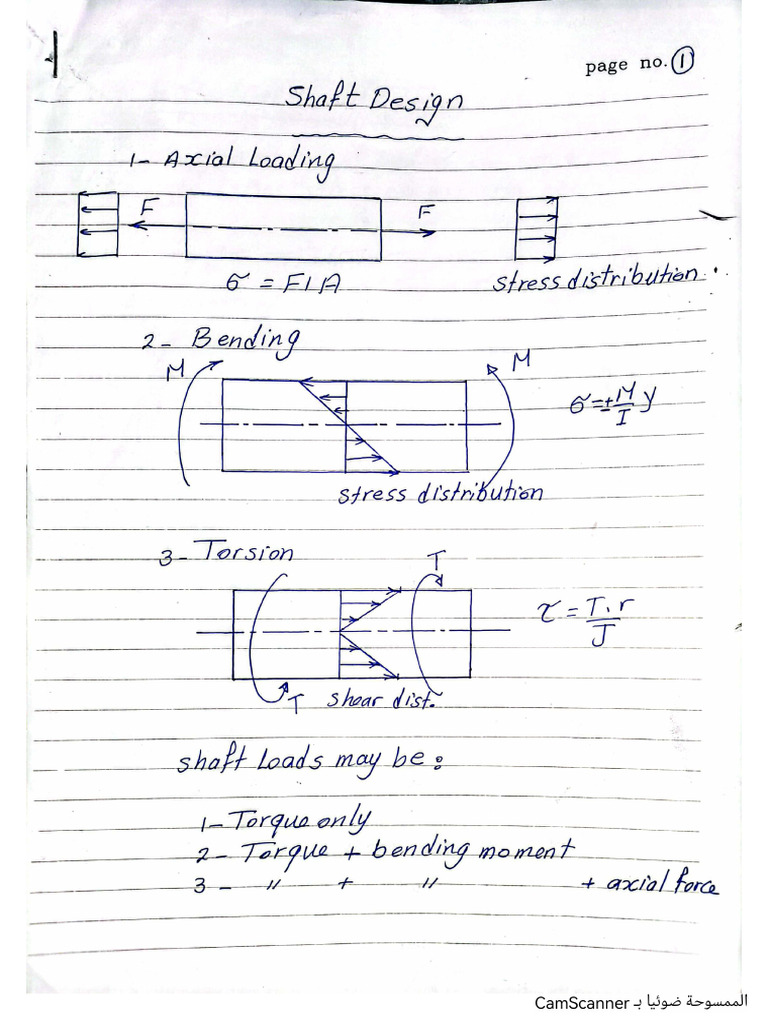 page no. 1
Shaft Design
1- Axial Loading
F F
σ = F/A stress distribution.
2- Bending
M M
σ = ± M/I y
stress distribution
3- Torsion
T
τ = T.r/J
T shear dist.
shaft Loads may be:
1- Torque only
2- Torque + bending moment
3- " + " + axial force
الممسوحة ضوئيا بـ CamScanner